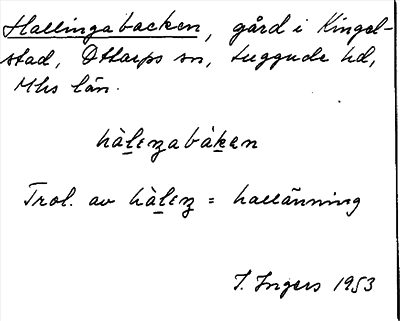 Hallingabacken, gård i Kingel-
stad, Ottarps sn, Luggude hd,
Mhs län.
hàlıŋabàken
Trol. av hàlıŋ = hallänning
I. Ingers 1953